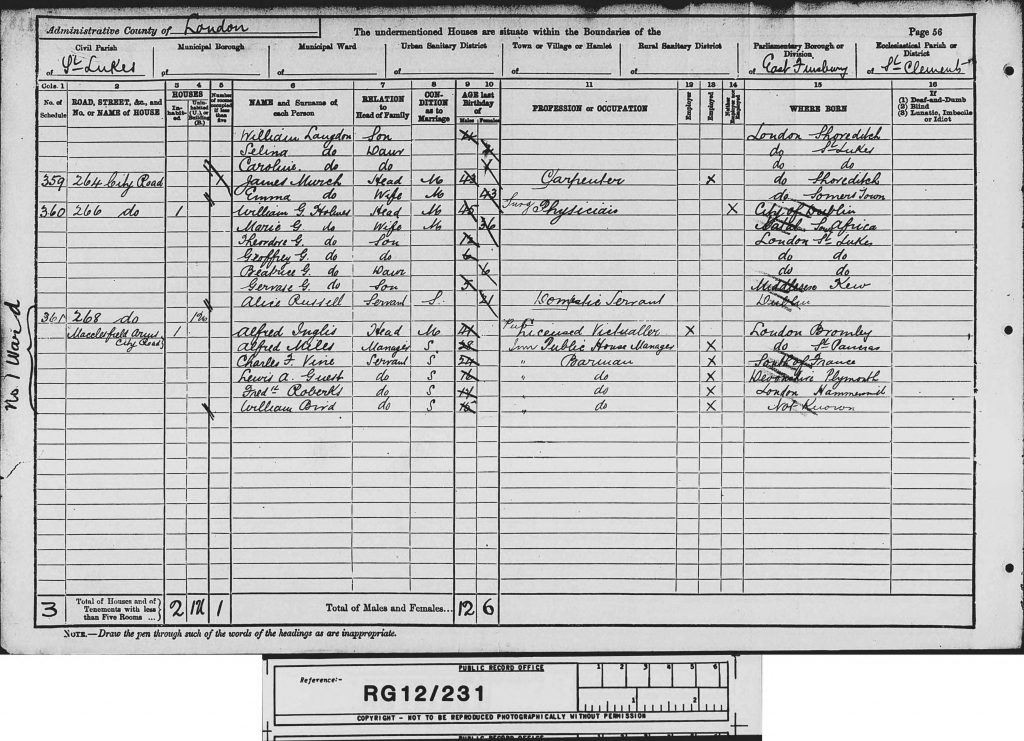 Administrative County of London The undermentioned Houses are situate within the Boundaries of the Page 56
Civil Parish Municipal Borough Municipal Ward Urban Sanitary District Town or Village or Hamlet Rural Sanitary District Parliamentary Borough or Division Ecclesiastical Parish or District
of St. Lukes of of of of of of East Finsbury of St. Clement
Cols. 1 2 3 4 5 6 7 8 9 10 11 12 13 14 15 16
No. of Schedule ROAD, STREET, &c., and No. or NAME of HOUSE HOUSES Inhabited Uninhabited (U.) or Building (B.) Number of rooms occupied if less than five NAME and Surname of each Person RELATION to Head of Family CONDITION as to Marriage AGE last Birthday of Males Females PROFESSION or OCCUPATION Employer Employed Neither Employer nor Employed WHERE BORN If (1) Deaf-and-Dumb (2) Blind (3) Lunatic, Imbecile or Idiot
William Langdon Son London Shoreditch
Selina do Daur do St Lukes
Caroline do do do do
359 264 City Road James Murch Head M 43 Carpenter X do Shoreditch
Emma do Wife M 43 do Somers Town
360 266 do 1 William G. Holmes Head M 45 Surg Physician X City of Dublin
Marie G. do Wife M 36 Natal South Africa
Theodore G. do Son 12 London St Lukes
Geoffrey G. do do 6 do do
Beatrice G. do Daur 6 do do
Gervase G. do Son 5 Middlesex Kew
Alice Russell Servant S. 21 Domestic Servant Dublin
361 268 do
Macclesfield Arms City Road 1 Alfred Inglis Head M 41 Pub Licensed Victualler X London Bromley
Alfred Miles Manager S. 28 Inn Public House Manager X do St Pancras
Charles F. Vine Servant S 24 " Barman X South of France
Lewis A. Guest do S 16 " do X Devonshire Plymouth
Fredk Roberts do S " do X London
William Bird do S 15 " do X Not Known
No. 1 Ward
3 Total of Houses and of Tenements with less than Five Rooms ... 2 1U 1 Total of Males and Females... 12 6
NOTE.—Draw the pen through such of the words of the headings as are inappropriate.
PUBLIC RECORD OFFICE 1 2 3 4 5 6
Reference:-
RG12/231 1 2
COPYRIGHT - NOT TO BE REPRODUCED PHOTOGRAPHICALLY WITHOUT PERMISSION
PUBLIC RECORD OFFICE 1 2 3 4 5 6